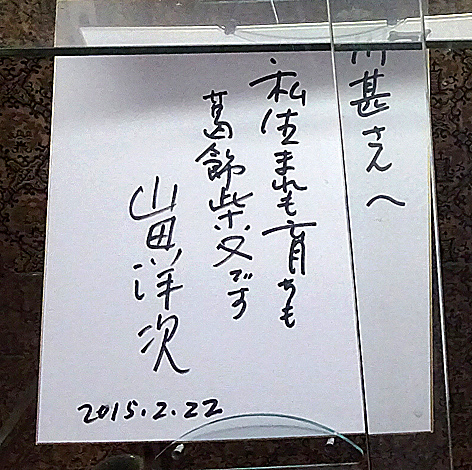 川甚さんへ
私生まれも育ちも
葛飾柴又です
山田洋次
2015.2.22